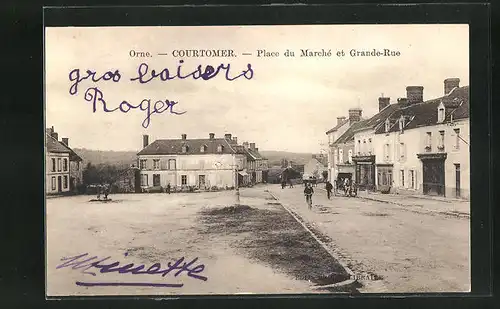 Orne. — COURTOMER. — Place du Marché et Grande-Rue
gros baisers
Roger
Minette